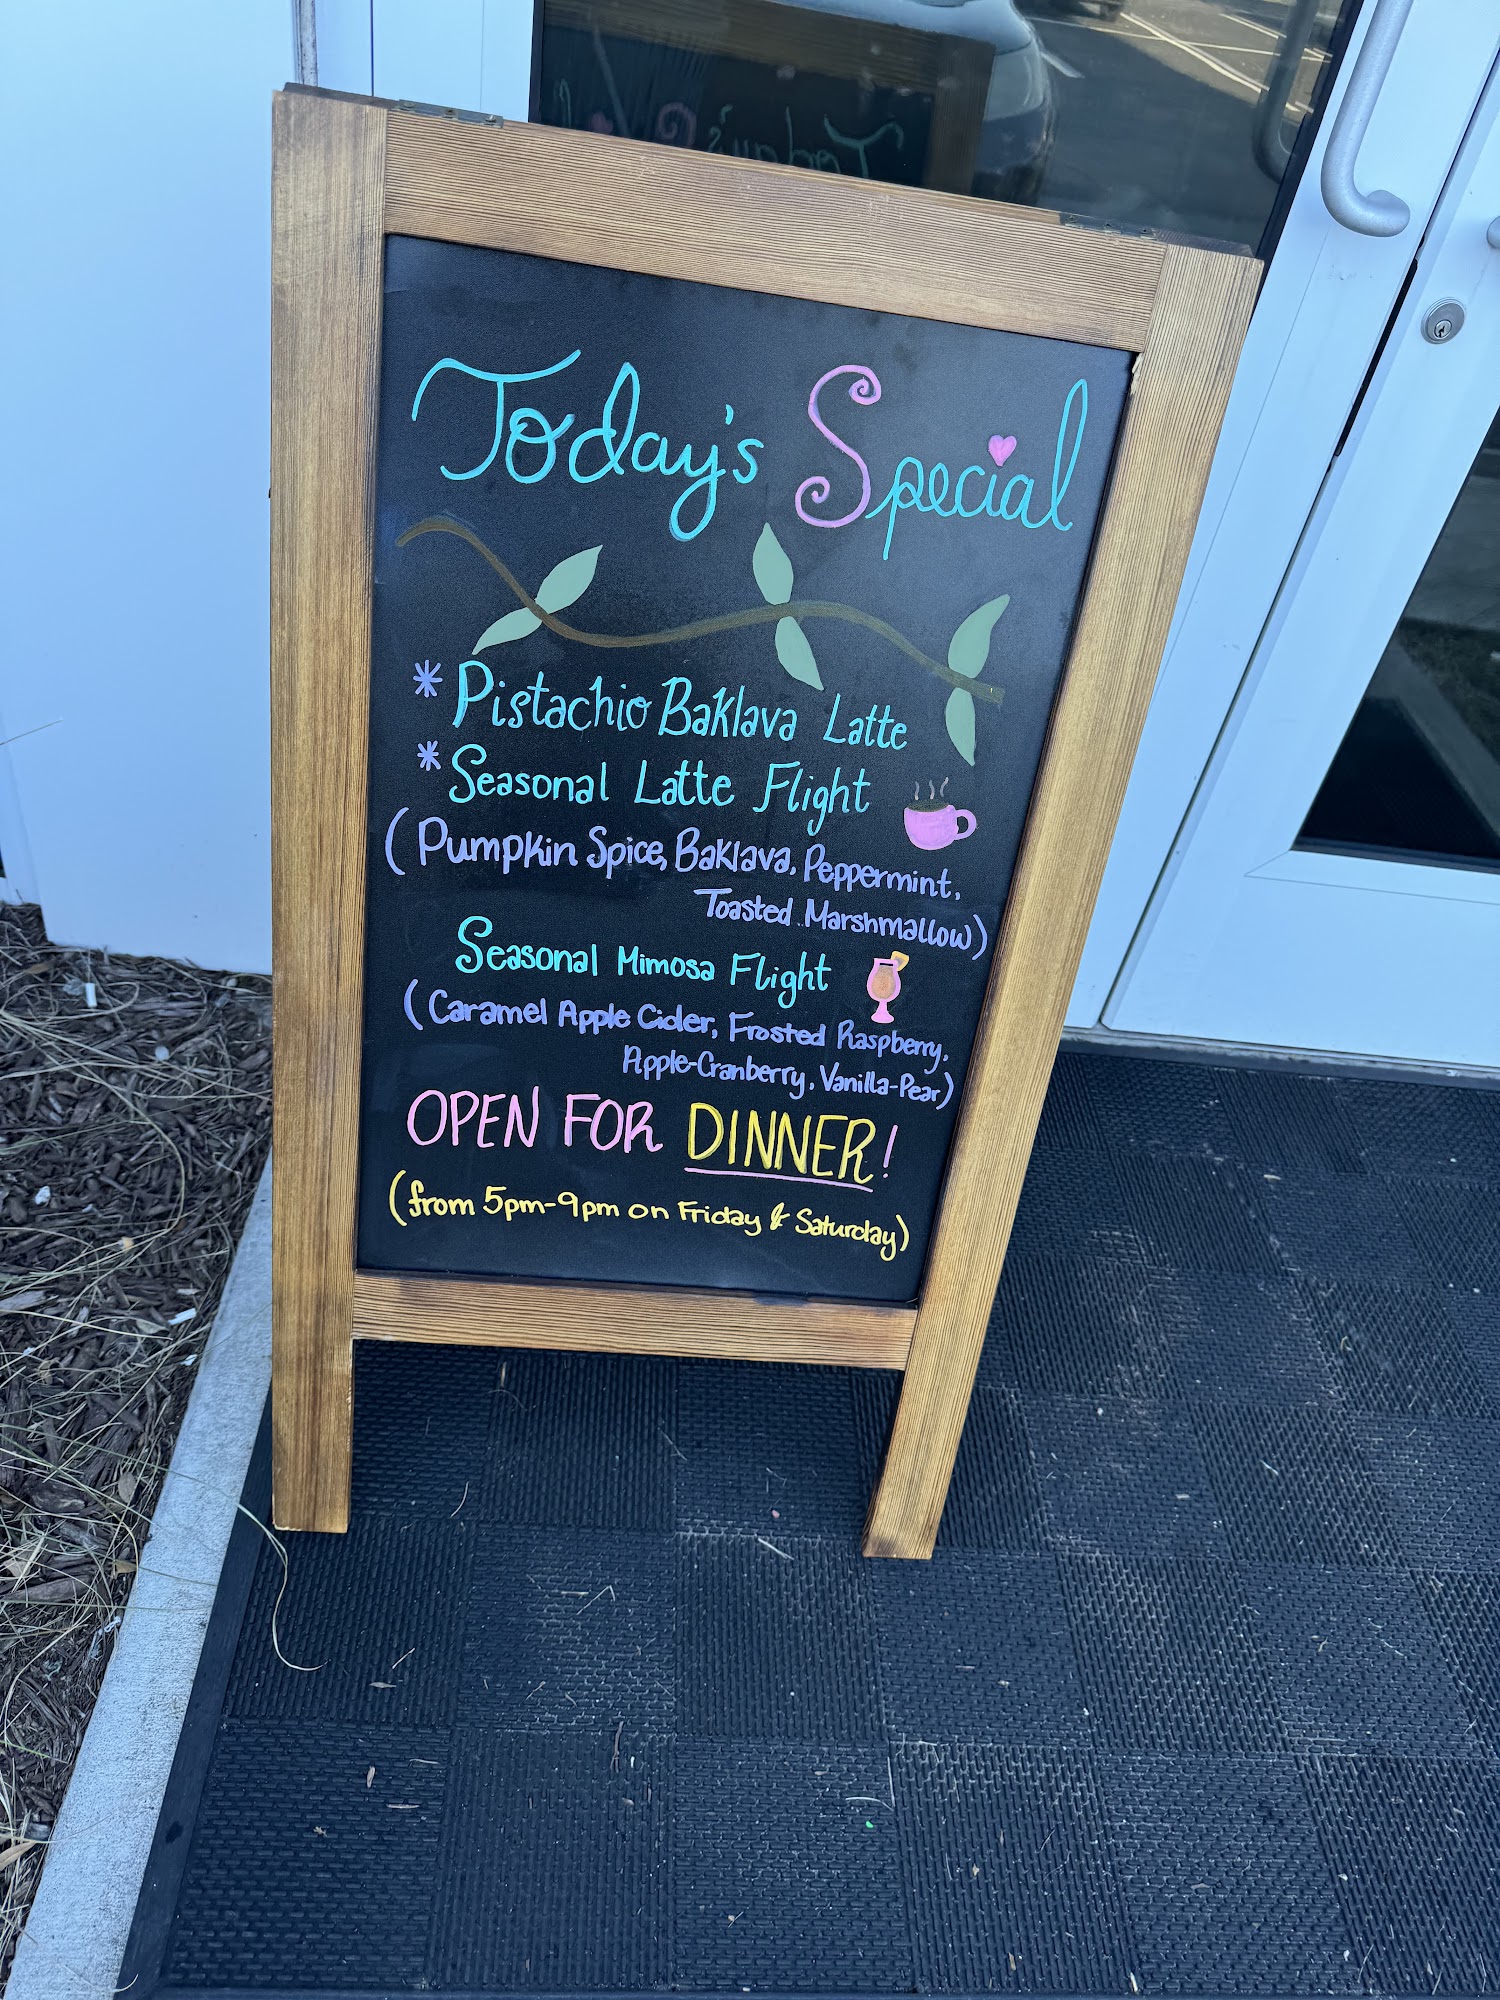 Today's Special
* Pistachio Baklava Latte
* Seasonal Latte Flight
(Pumpkin Spice, Baklava, Peppermint,
Toasted Marshmallow)
Seasonal Mimosa Flight
(Caramel Apple Cider, Frosted Raspberry,
Apple-Cranberry, Vanilla-Pear)
OPEN FOR DINNER!
(from 5pm-9pm on Friday & Saturday)